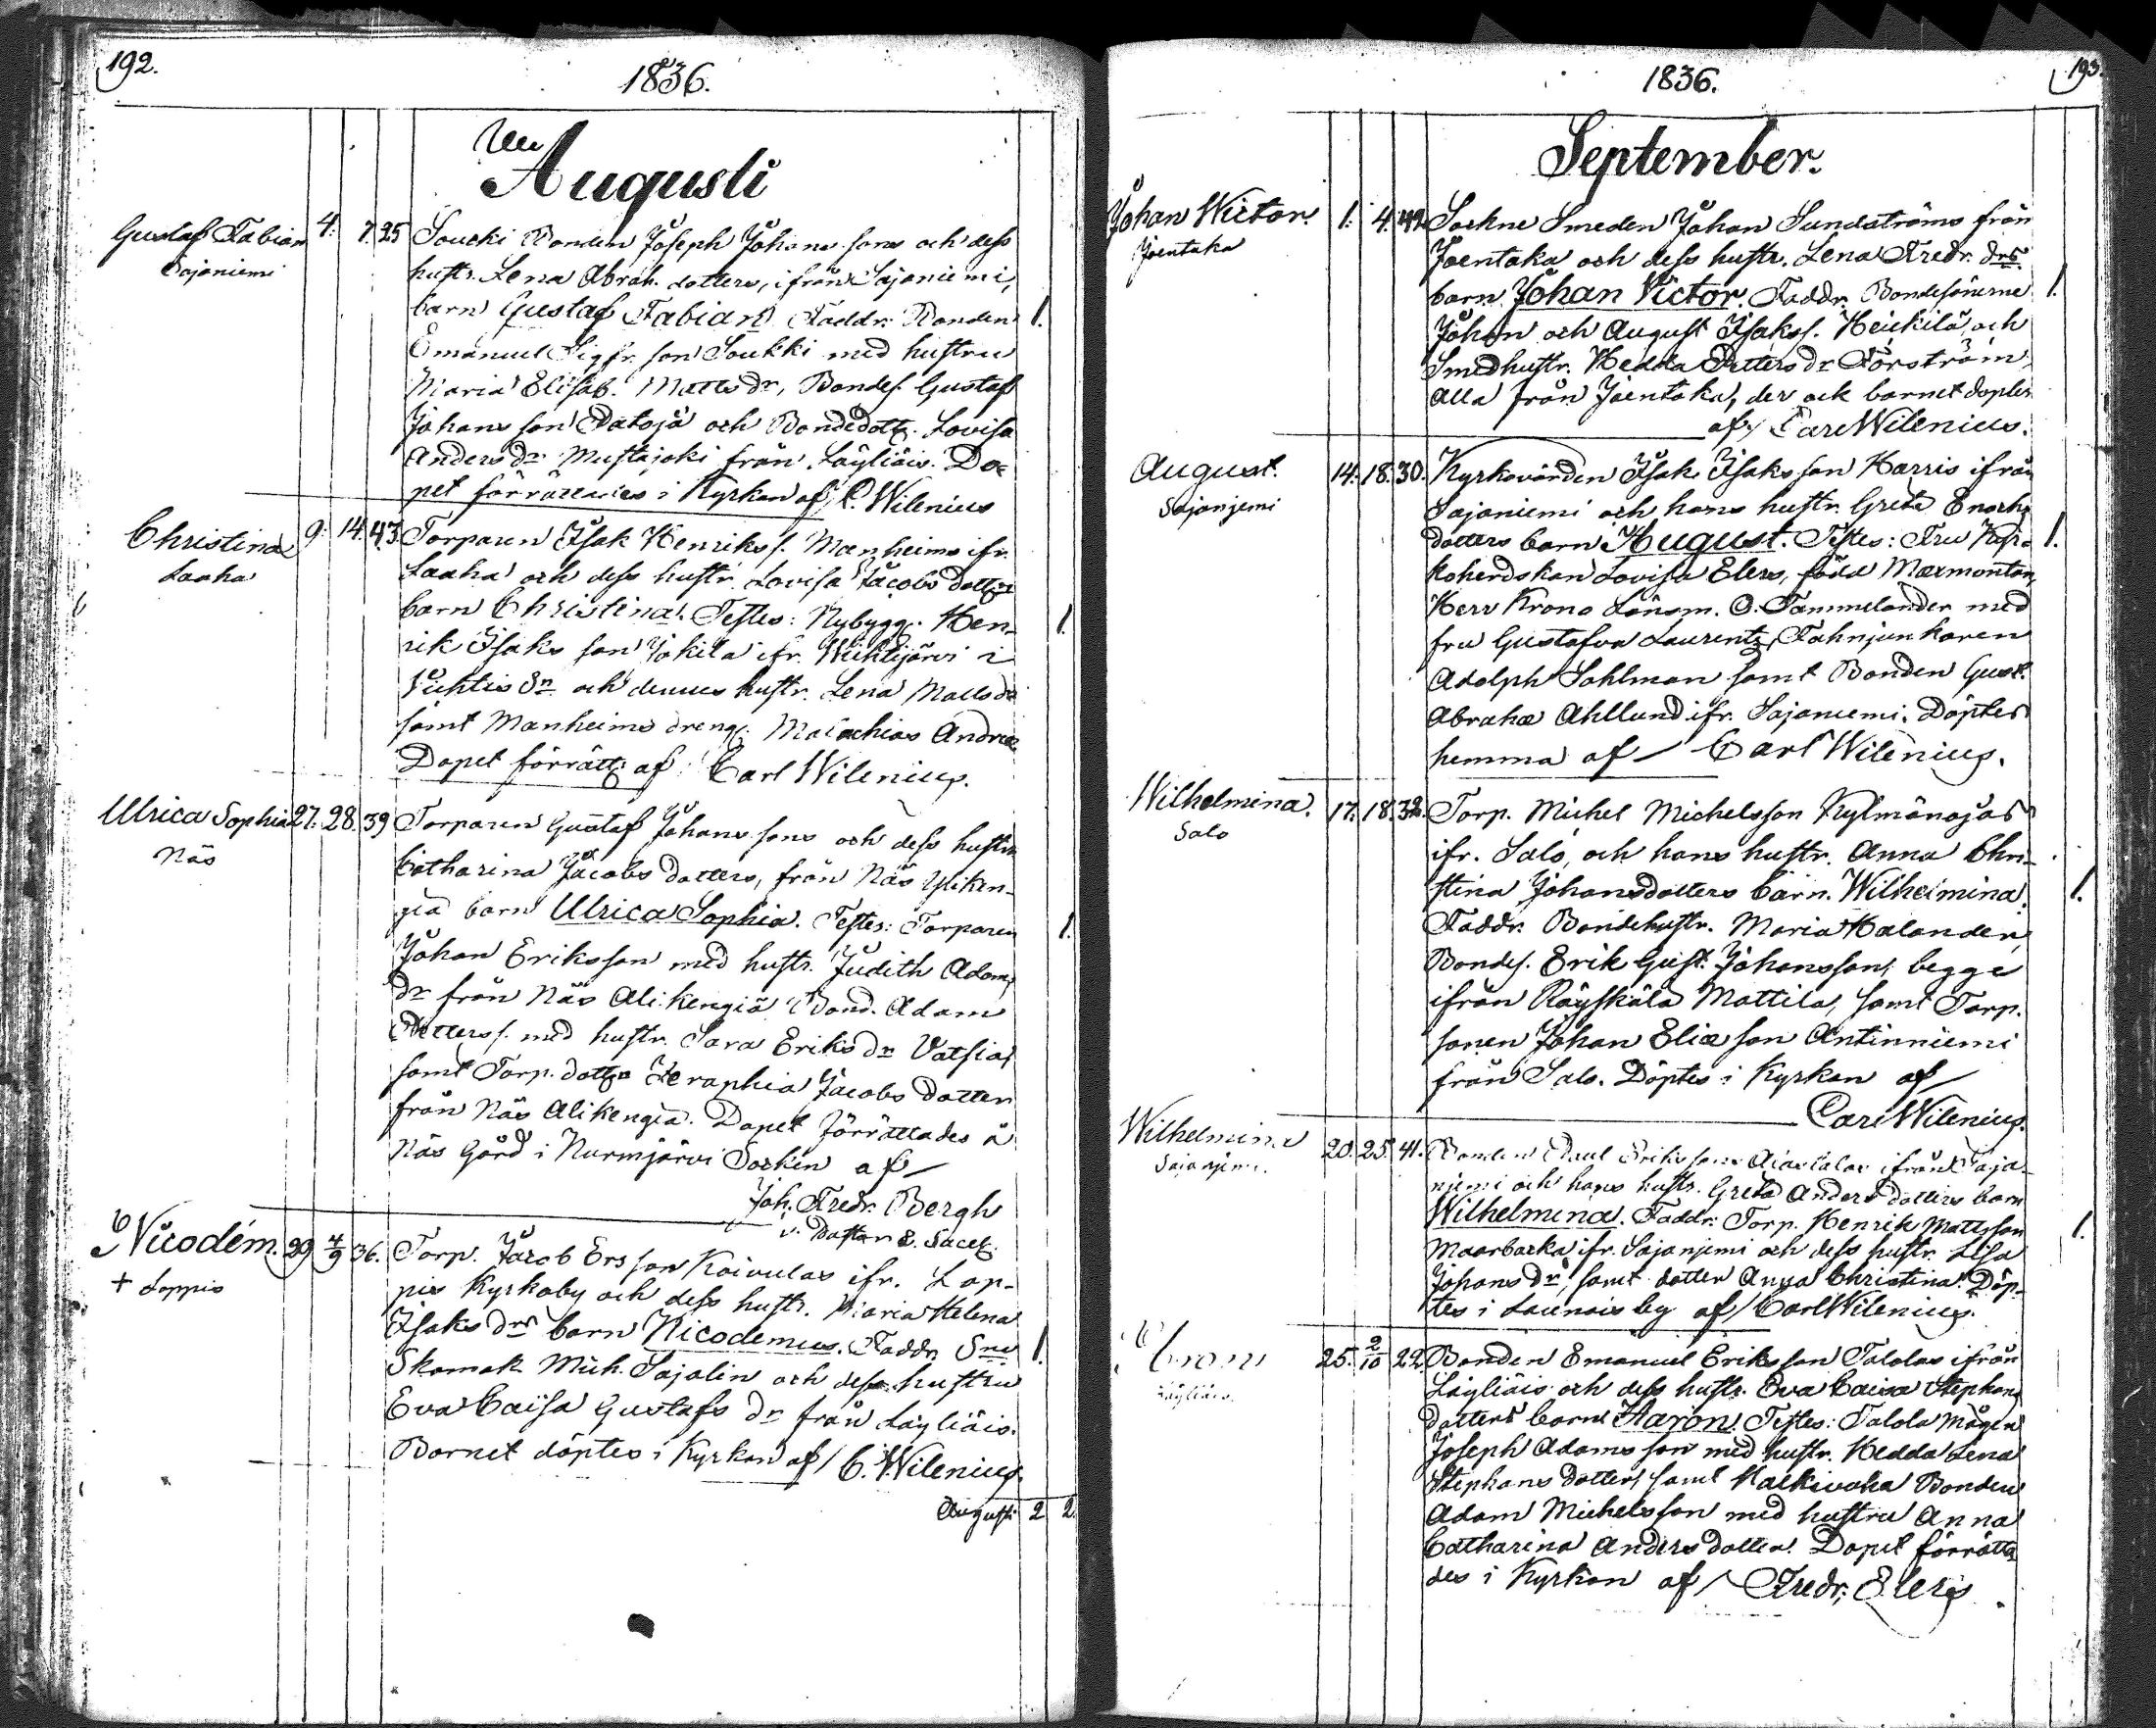 192.
1836.
Augusti
Gustaf Fabian 4. 7. 25
Sajaniemi
Soucki Bonden Joseph Johans sons och dess
hustr. Lena Abrah. dotters, ifrån Sajaniemi,
barn Gustaf Fabian Faddr: Bonden 1.
Emanuel Sigfr. son Soukki med hustru
Maria Elisab. Matts dr, Bondes. Gustaf
Johans son och Bondedott. Lovisa
Anders dr Mustajoki från Läyliäis. Do-
pet förrättades i Kyrkan af C. Wilenius
Christina 9. 14. 43
Laaka
Torparen Isak Henrikss. Manheims ifr.
Laaka och dess hustr. Lovisa Jacobs dotters
barn Christina. Testes: Nybygg. Hen- 1.
rik Isaks son Jokila ifr. Wihtijärvi i
Vichtis Sn och dennes hustr. Lena Matts dr
samt Manheims dreng. Malachias Andreæ
Dopet förrätt. af Carl Wilenius.
Ulrica Sophia 27. 28. 39
Näs
Torparen Gustaf Johans sons och dess hustru
Catharina Jacobs dotters, från Näs Yliken-
giä barn Ulrica Sophia. Testes: Torparen 1.
Johan Eriksson med hustr. Judith Adams
dr från Näs Alikengiä Bond. Adam
Petterss. med hustr. Sara Eriks dr Vatsia,
samt Torp. dottr Zeraphia Jacobs dotter
från Näs Alikengiä. Dopet förrättades å
Näs Gård i Nurmjärvi Sockn af
Joh. Fredr. Bergh
v. Pastor & Sacell.
Nicodem. 29 4/9 36.
+ Loppis
Torp. Jacob Ersson Koivulas ifr. Lop-
pis Kyrkoby och dess hustr. Maria Helena
Isaks drs barn Nicodemus. Faddr. Sne 1.
Skomak. Mich. Sajalin och dess hustru
Eva Caisa Gustafs dr från Läyliäis.
Barnet döptes i Kyrkan af C. Wilenius.
Augusti 2 2.
1836.
193.
September.
Johan Wictor. 1. 4. 42
Joentaka
Sockne Smeden Johan Sundströms från
Joentaka och dess hustr. Lena Fredr. drs
barn Johan Victor. Faddr. Bondesönerne 1.
Johan och August Isakss. Heickilä, och
Smedhustr. Hedda Petters dr Forström
alla från Joentaka, der ock barnet döptes
af Carl Wilenius.
August. 14. 18. 30.
Sajanjemi
Kyrkovärden Isak Isaks son Harris ifrån
Sajaniemi och hans hustr. Greta Enochs
dotters barn August. Testes: Fru Kyr- 1.
koherdskan Lovisa Elers, född Marmontan,
Herr Krono Länsm. O. Tammelander med
fru Gustafva Laurentz, Fahnjunkaren
Adolph Sahlman samt Bonden Gust.
Abrahæ Ahllund ifr. Sajaniemi. Döptes
hemma af Carl Wilenius.
Wilhelmina. 17. 18. 32.
Salo
Torp. Michel Michelsson Kylmänojas
ifr. Salo, och hans hustr. Anna Chri-
stina Johansdotters barn. Wilhelmina. 1.
Faddr. Bondehustr. Maria Halander,
Bondes. Erik Gust. Johansson, begge
ifrån Räyskälä Mattila, samt Torp.
sonen Johan Eliæ son Antinniemi
från Salo. Döptes i Kyrkan af
Carl Wilenius.
Wilhelmina 20. 25. 41.
Sajanjemi.
Bonden Paul Eriks sons ifrån Saja-
njemi och hans hustr. Greta Anders dotters barn
Wilhelmina. Faddr: Torp. Henrik Mattsson 1.
Maarbacka ifr. Sajanjemi och dess hustr. Lisa
Johans dr, samt dotter Anna Christina. Döp-
tes i Launois by af Carl Wilenius.
Aron 25. 2/10 22.
Läyliäis.
Bonden Emanuel Eriksson Talolas ifrån
Läyliäis och dess hustr. Eva Caisa Stephans
dotters barn Aaron. Testes: Talola Mågen
Joseph Adams son med hustr. Hedda Lena
Stephans dotter, samt Kalkivaha Bonden
Adam Michelsson med hustru Anna
Catharina Anders dotter. Dopet förrätta-
des i Kyrkan af Fredr. Elers